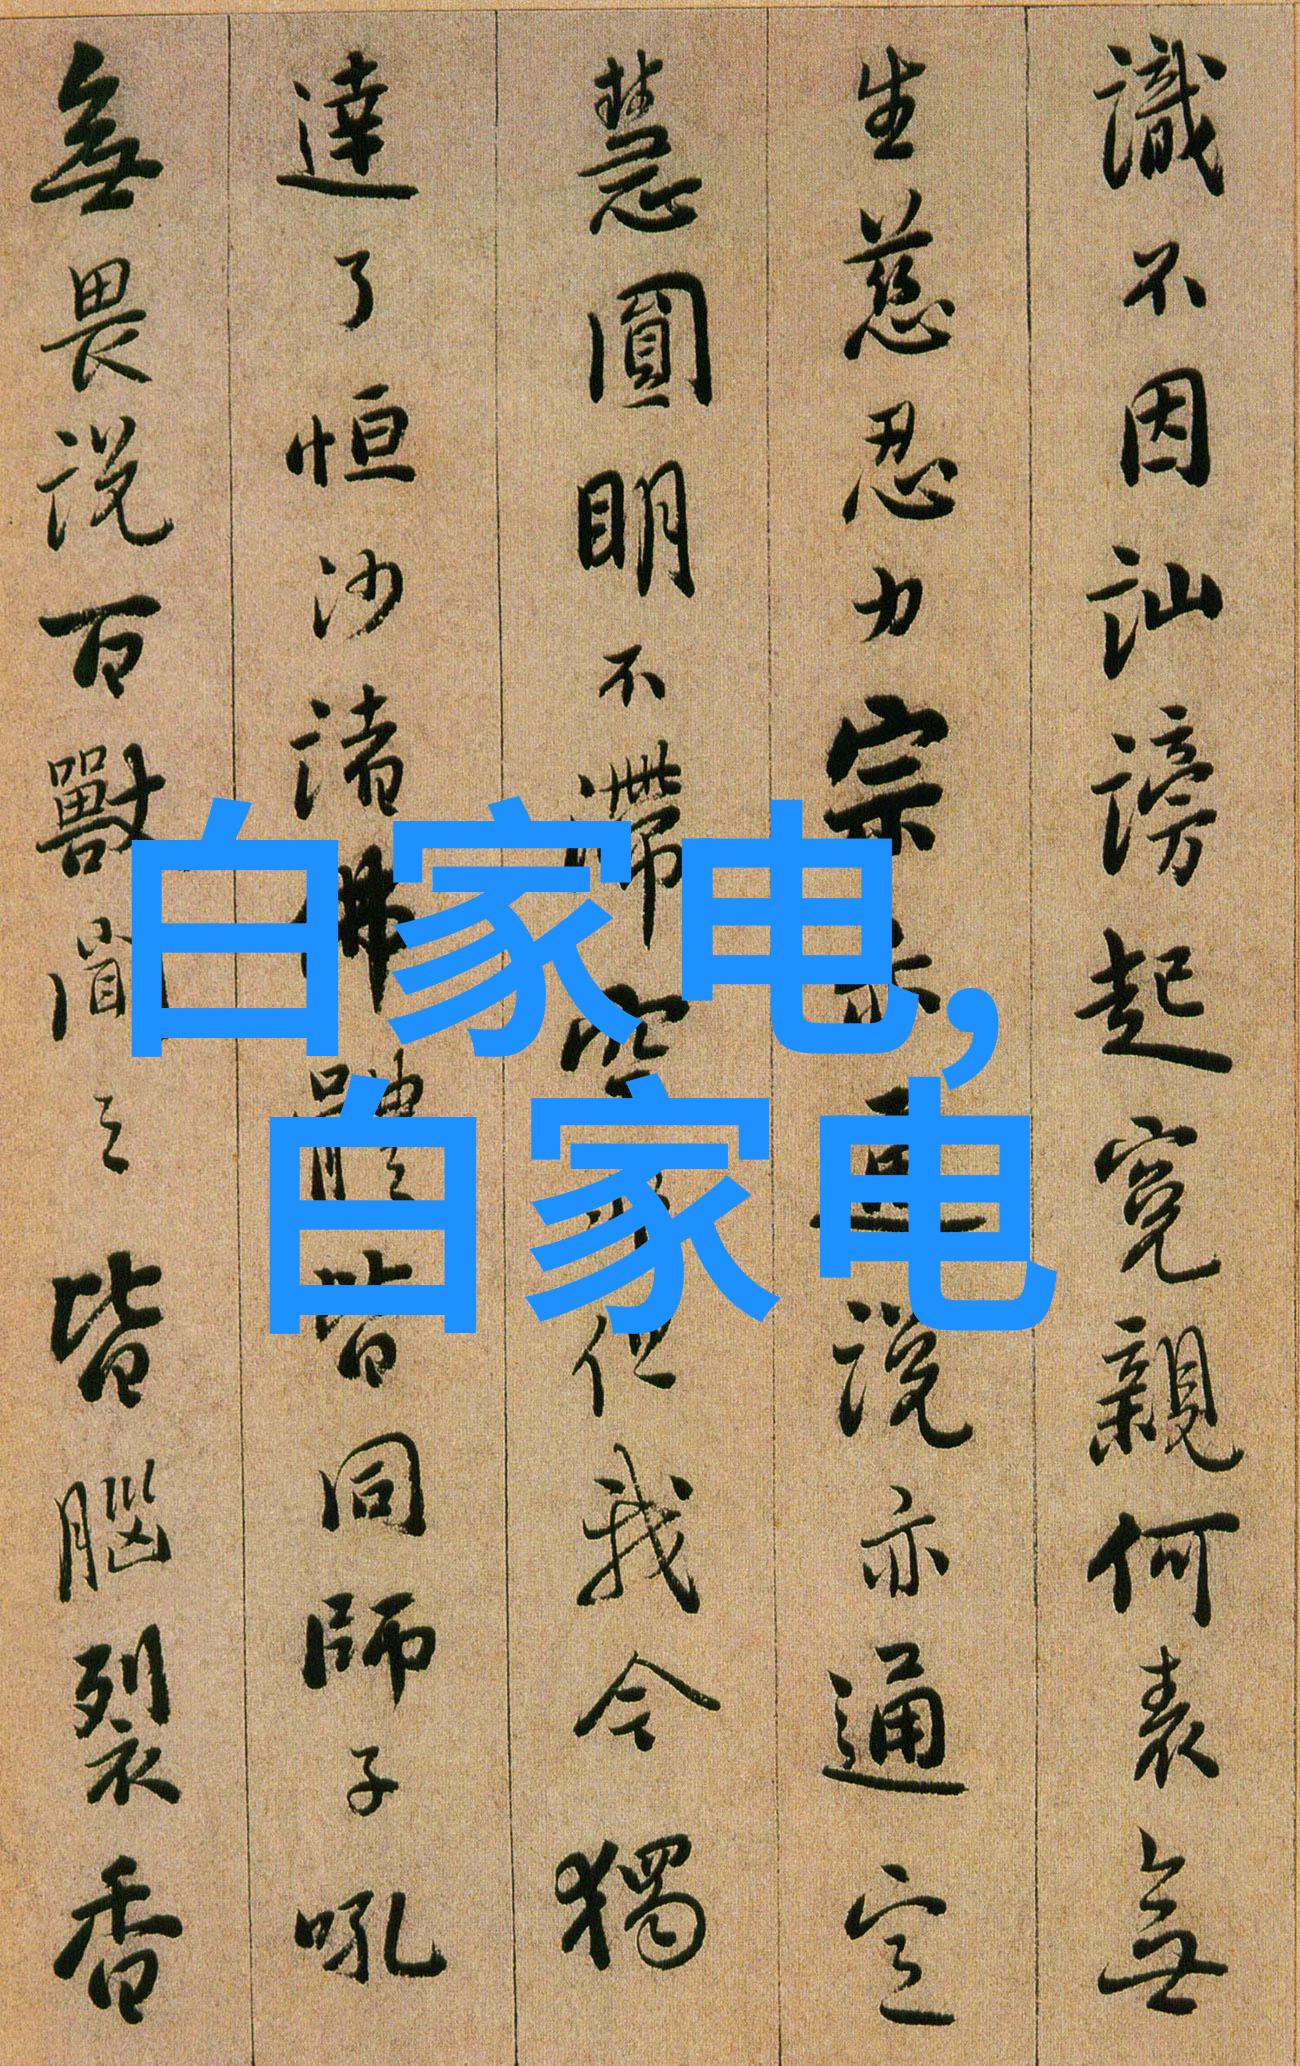 識不因訕謗起寃親何表無
生慈忍力宗亦通說亦通定
慧圓明不滯空但我今獨
達了恒沙諸佛體皆同師子吼
無畏說百獸聞之皆腦裂香
白家电,
白家电